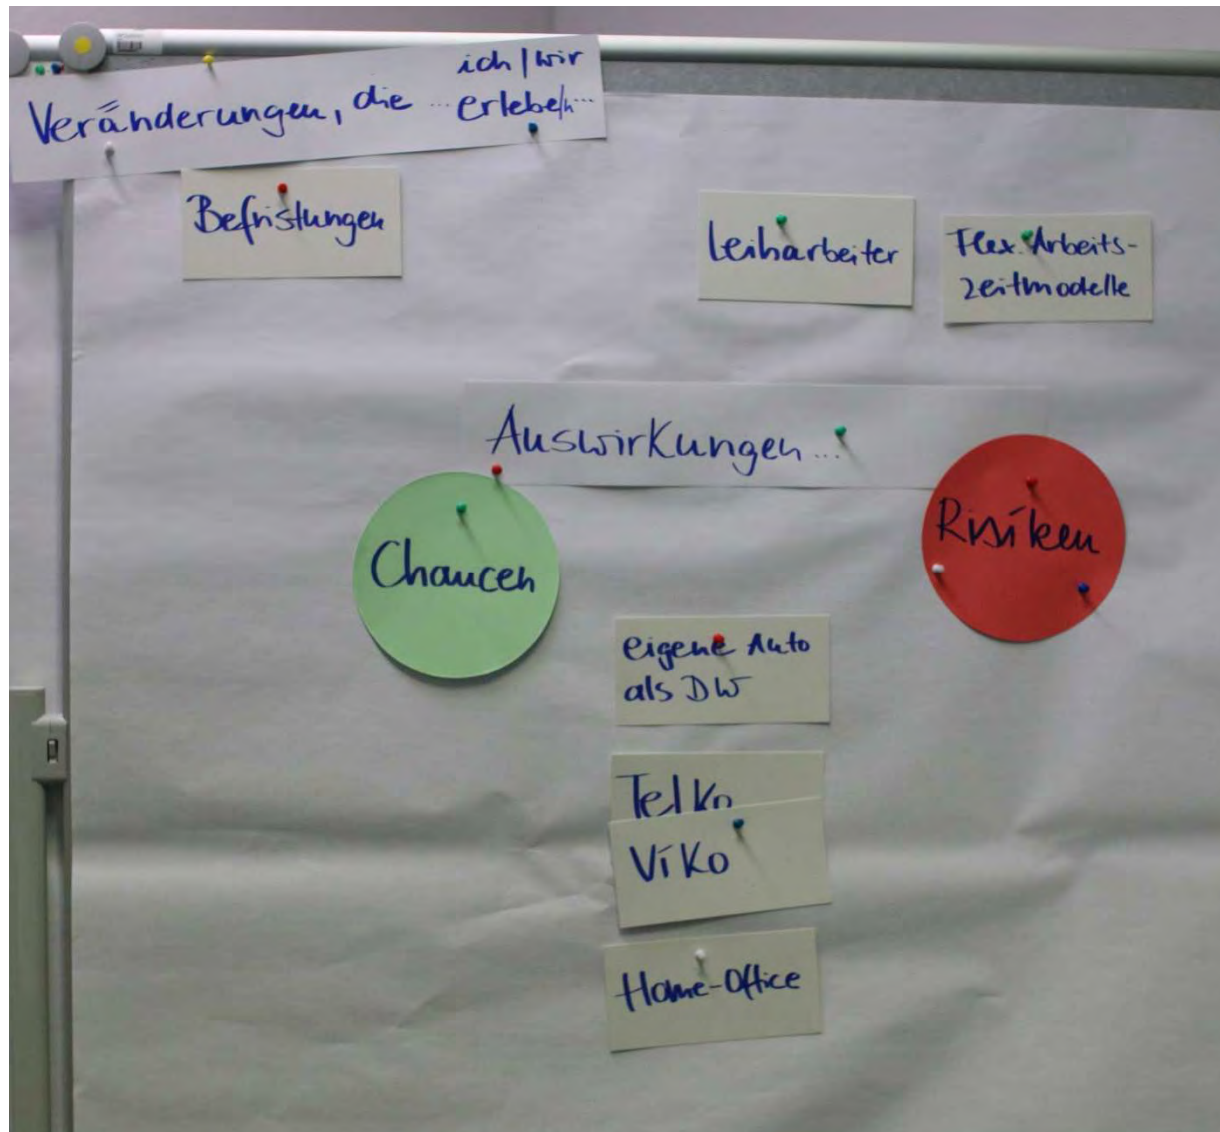 ich/wir
Veränderungen, die ... erlebe/n...
Befristungen
Leiharbeiter
Flex. Arbeits-
zeitmodelle
Auswirkungen...
Chancen
Risiken
eigene Auto
als DW
Telko
ViKo
Home-Office